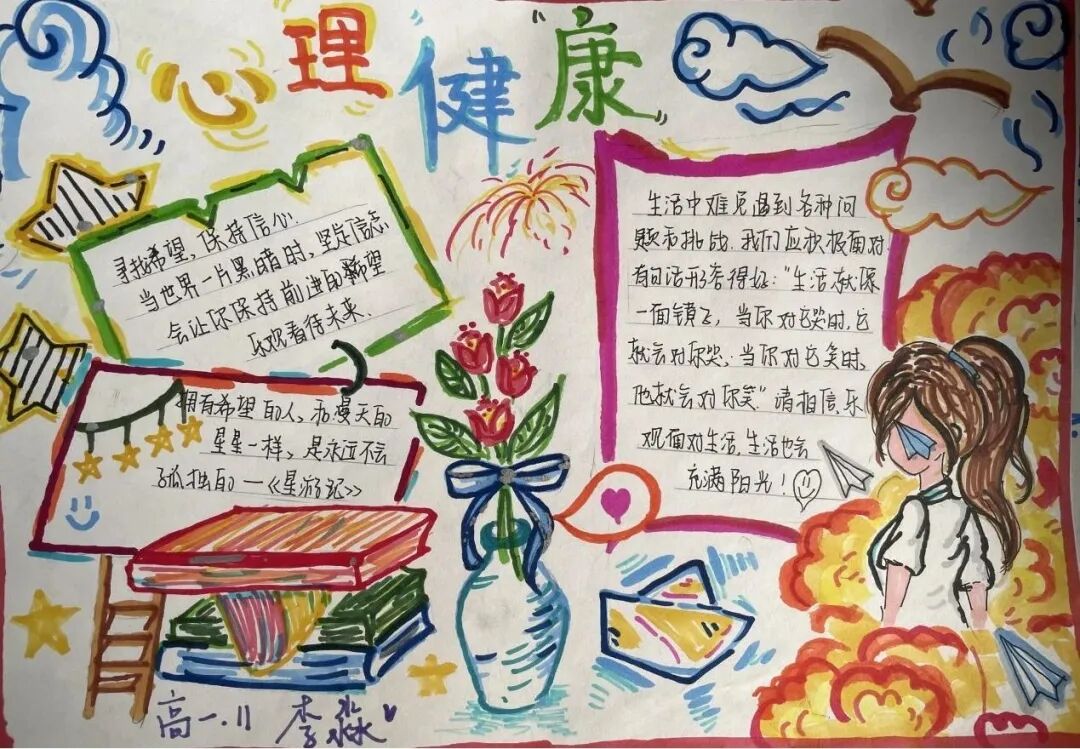 心理健康
寻找希望，保持信心.
当世界一片黑暗时，坚定信念
会让你保持前进的希望
乐观看待未来.
拥有希望的人，和漫天的
星星一样，是永远不会
孤独的 —《星游记》
生活中难免遇到各种问
题和挑战.我们应积极面对.
有句话形容得好："生活就像
一面镜子，当你对它哭时，它
就会对你哭；当你对它笑时，
他就会对你笑"请相信，乐
观面对生活，生活也会
充满阳光！
高一.11 李淼